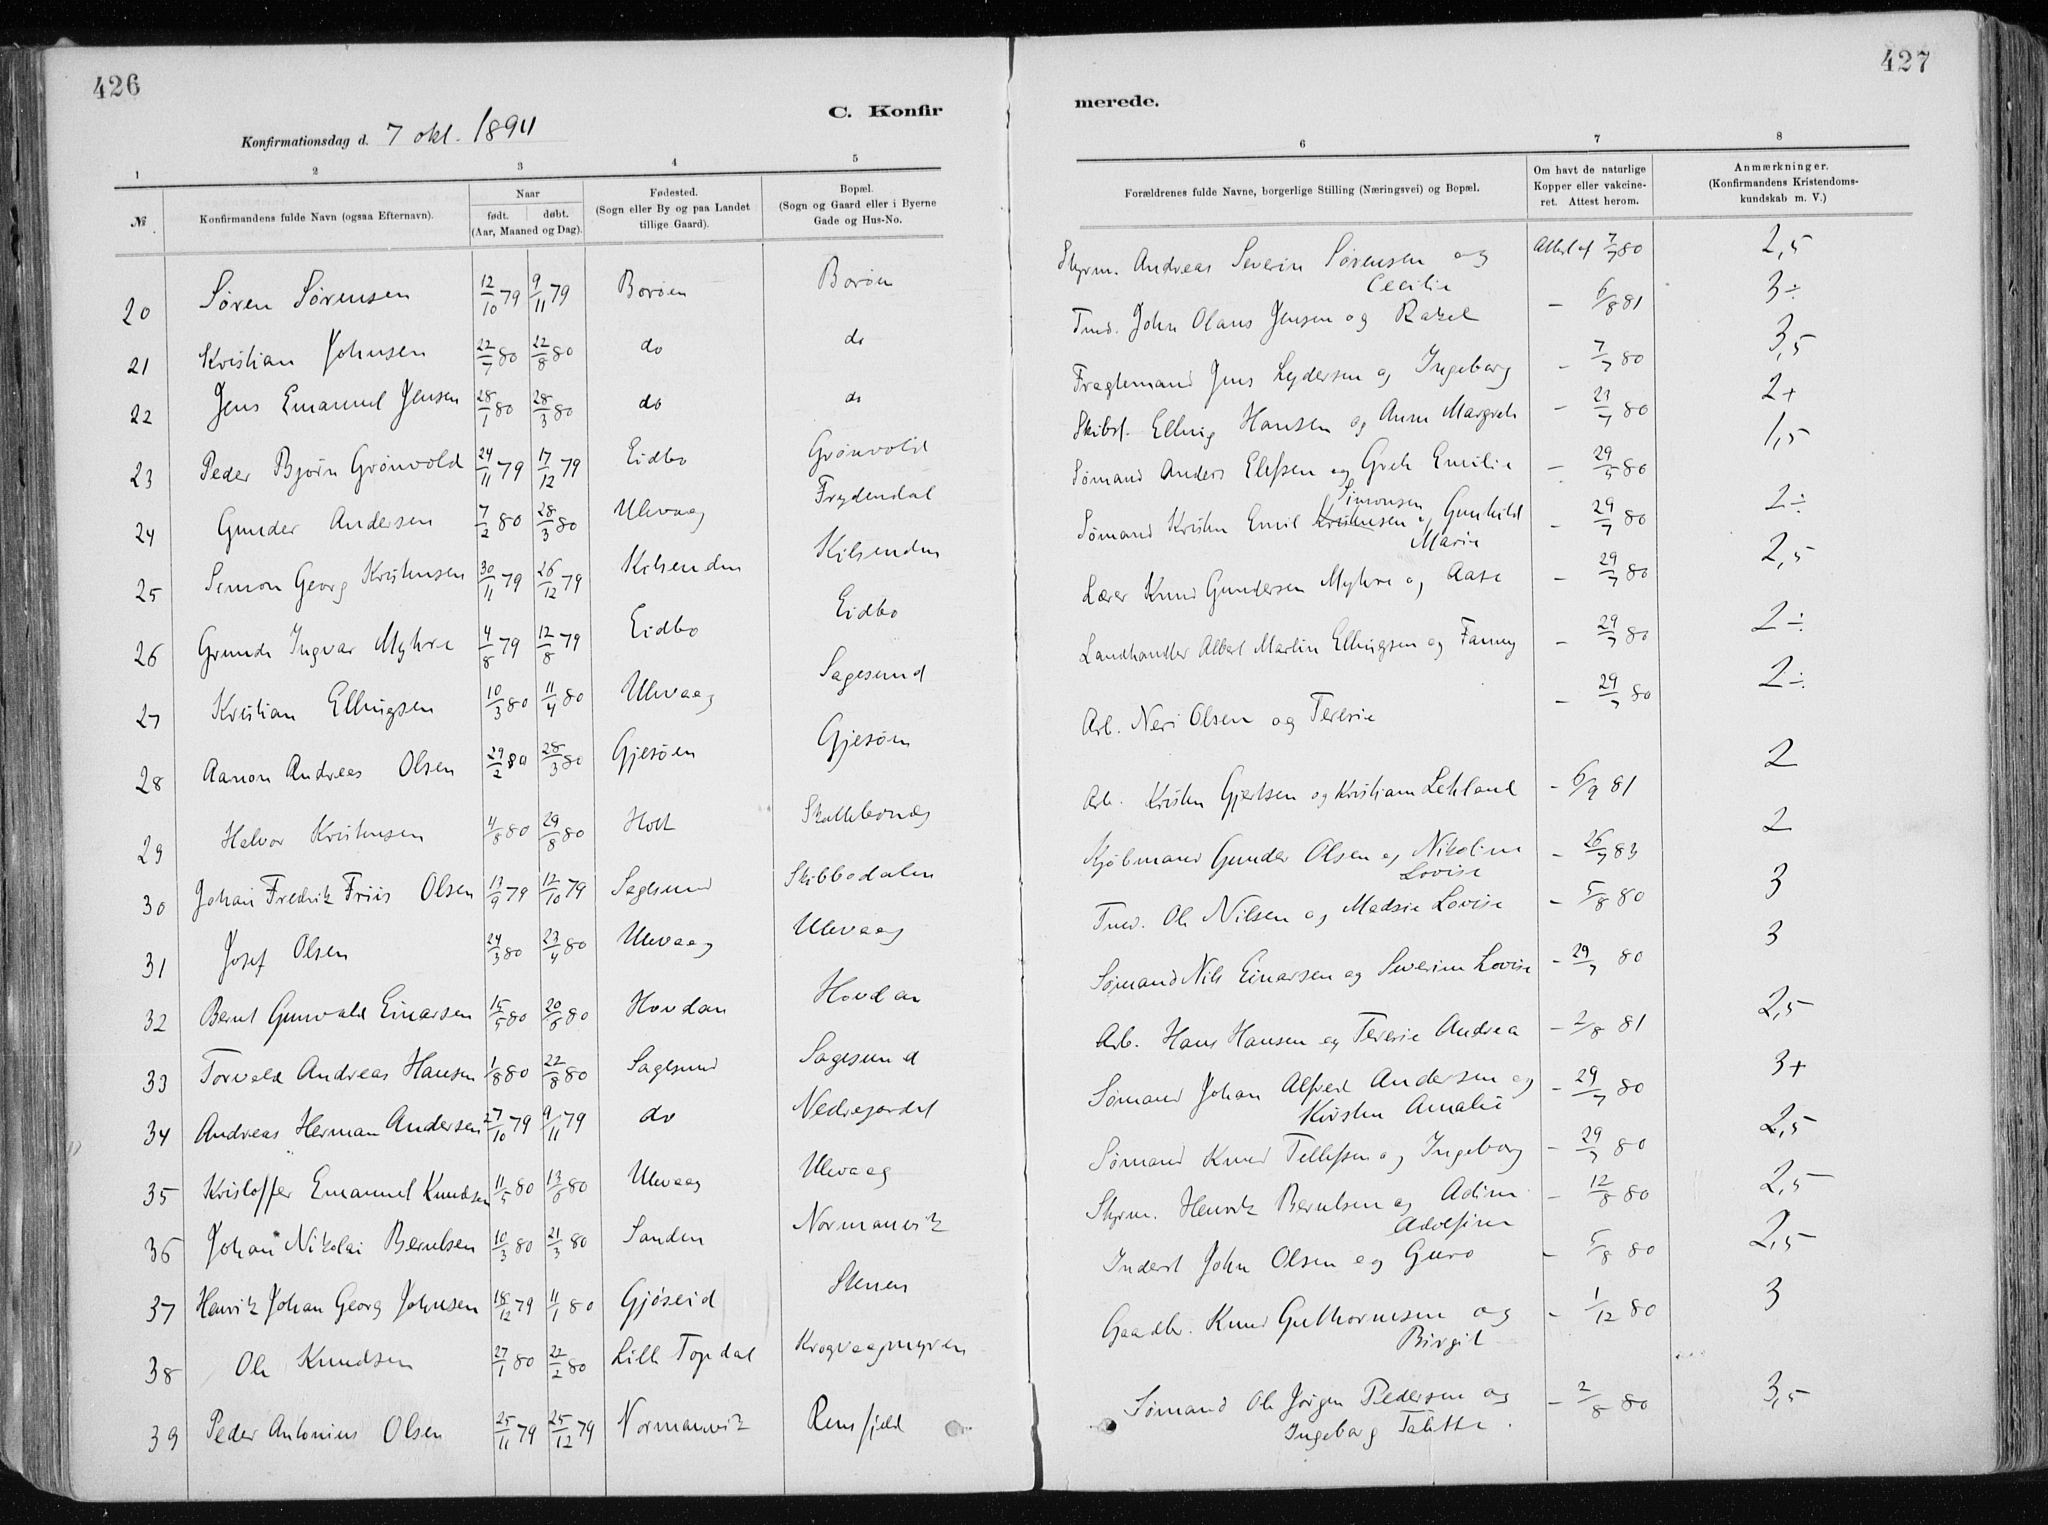 426
C. Konfir
Konfirmationsdag d. 7 okt. 1894
1 2 3 4 5
№ Konfirmandens fulde Navn (ogsaa Efternavn). Naar født. døbt. (Aar, Maaned og Dag). Fødested. (Sogn eller By og paa Landet tillige Gaard). Bopæl. (Sogn og Gaard eller i Byerne Gade og Hus-No.
20 Søren Sørensen 12/10 79 9/11 79 Borøen Borøen
21 Kristian Johnsen 22/7 80 22/8 80 do do
22 Jens Emanuel Jensen 28/1 80 28/3 80 do do
23 Peder Bjørn Grönvold 24/11 79 17/12 79 Eidbo Grönvold
24 Gunder Andersen 7/2 80 28/3 80 Ulevaag Frydendal
25 Simon Georg Kristensen 30/11 79 26/12 79 Kilsenden Kilsenden
26 Grunde Ingvar Myhre 4/8 79 12/8 79 Eidbo Eidbo
27 Kristian Ellingsen 10/3 80 11/4 80 Ulevaag Sagesund
28 Aanon Andreas Olsen 29/2 80 28/3 80 Gjesøen Gjesøen
29 Halvor Kristensen 4/8 80 29/8 80 Holt Skottebonæs
30 Johan Fredrik Friis Olsen 13/9 79 12/10 79 Sagesund Skibbodalen
31 Josef Olsen 24/3 80 23/4 80 Ulevaag Ulevaag
32 Bernt Gunvald Einarsen 15/5 80 20/6 80 Hovdan Hovdan
33 Torvald Andreas Hansen 1/8 80 22/8 80 Sagesund Sagesund
34 Andreas Herman Andersen 27/10 79 9/11 79 do Nedregardet
35 Kristoffer Emanuel Knudsen 11/5 80 13/6 80 Ulevaag Ulevaag
36 Johan Nikolai Berntsen 10/3 80 21/3 80 Sanden Normanvik
37 Henrik Johan Georg Johnsen 18/12 79 11/1 80 Gjøseid Stenen
38 Ole Knudsen 27/1 80 22/2 80 Lille Topdal Krogvaagmyren
39 Peder Antonius Olsen 25/11 79 25/12 79 Normanvik Rensfjeld
427
merede.
6 7 8
Forældrenes fulde Navne, borgerlige Stilling (Næringsvei) og Bopæl. Om havt de naturlige Kopper eller vakcineret. Attest herom. Anmærkninger. (Konfirmandens Kristendomskundskab m. V.)
Styrm. Andreas Severin Sørensen og Attest af 7/7 80 2,5
Cecilie
Tmd. John Olaus Jensen og Rakel - 6/8 81 3÷
Fragtemand Jens Lydersen og Ingeborg - 7/7 80 3,5
Skibsf. Elling Hansen og Anne Margrete - 23/7 80 2+
Sømand Anders Elefsen og Grete Emilie - 29/5 80 1,5
Simonsen
Sømand Kristen Emil Kristensen og Gunhild - 29/7 80 2÷
Marie
Lærer Knud Gundersen Myhre og Aase - 29/7 80 2,5
Landhandler Albert Martin Ellingsen og Fanny - 29/7 80 2÷
Arb. Neri Olsen og Teresie - 29/7 80 2÷
Arb. Kristen Gjertsen og Kristiane Letland - 6/9 81 2
Kjøbmand Gunder Olsen og Nikoline - 26/7 83 2
Lovise
Tmd. Ole Nilsen og Madsie Lovise - 5/8 80 3
Sømand Nils Einarsen og Severine Lovise - 29/7 80 3
Arb. Hans Hansen og Teresie Andrea - 2/8 81 2,5
Sømand Johan Alfred Andersen og - 29/7 80 3+
Kirsten Amalie
Sømand Knud Tellefsen og Ingeborg - 29/7 80 2,5
Styrm. Henrik Berntsen og Adine - 12/8 80 2,5
Adolfine
Inderst John Olsen og Guro - 5/8 80 2,5
Gaardbr. Knud Guthormsen og - 1/12 80 3
Birgit
Sømand Ole Jørgen Pedersen og - 2/8 80 3,5
Ingeborg Talette.